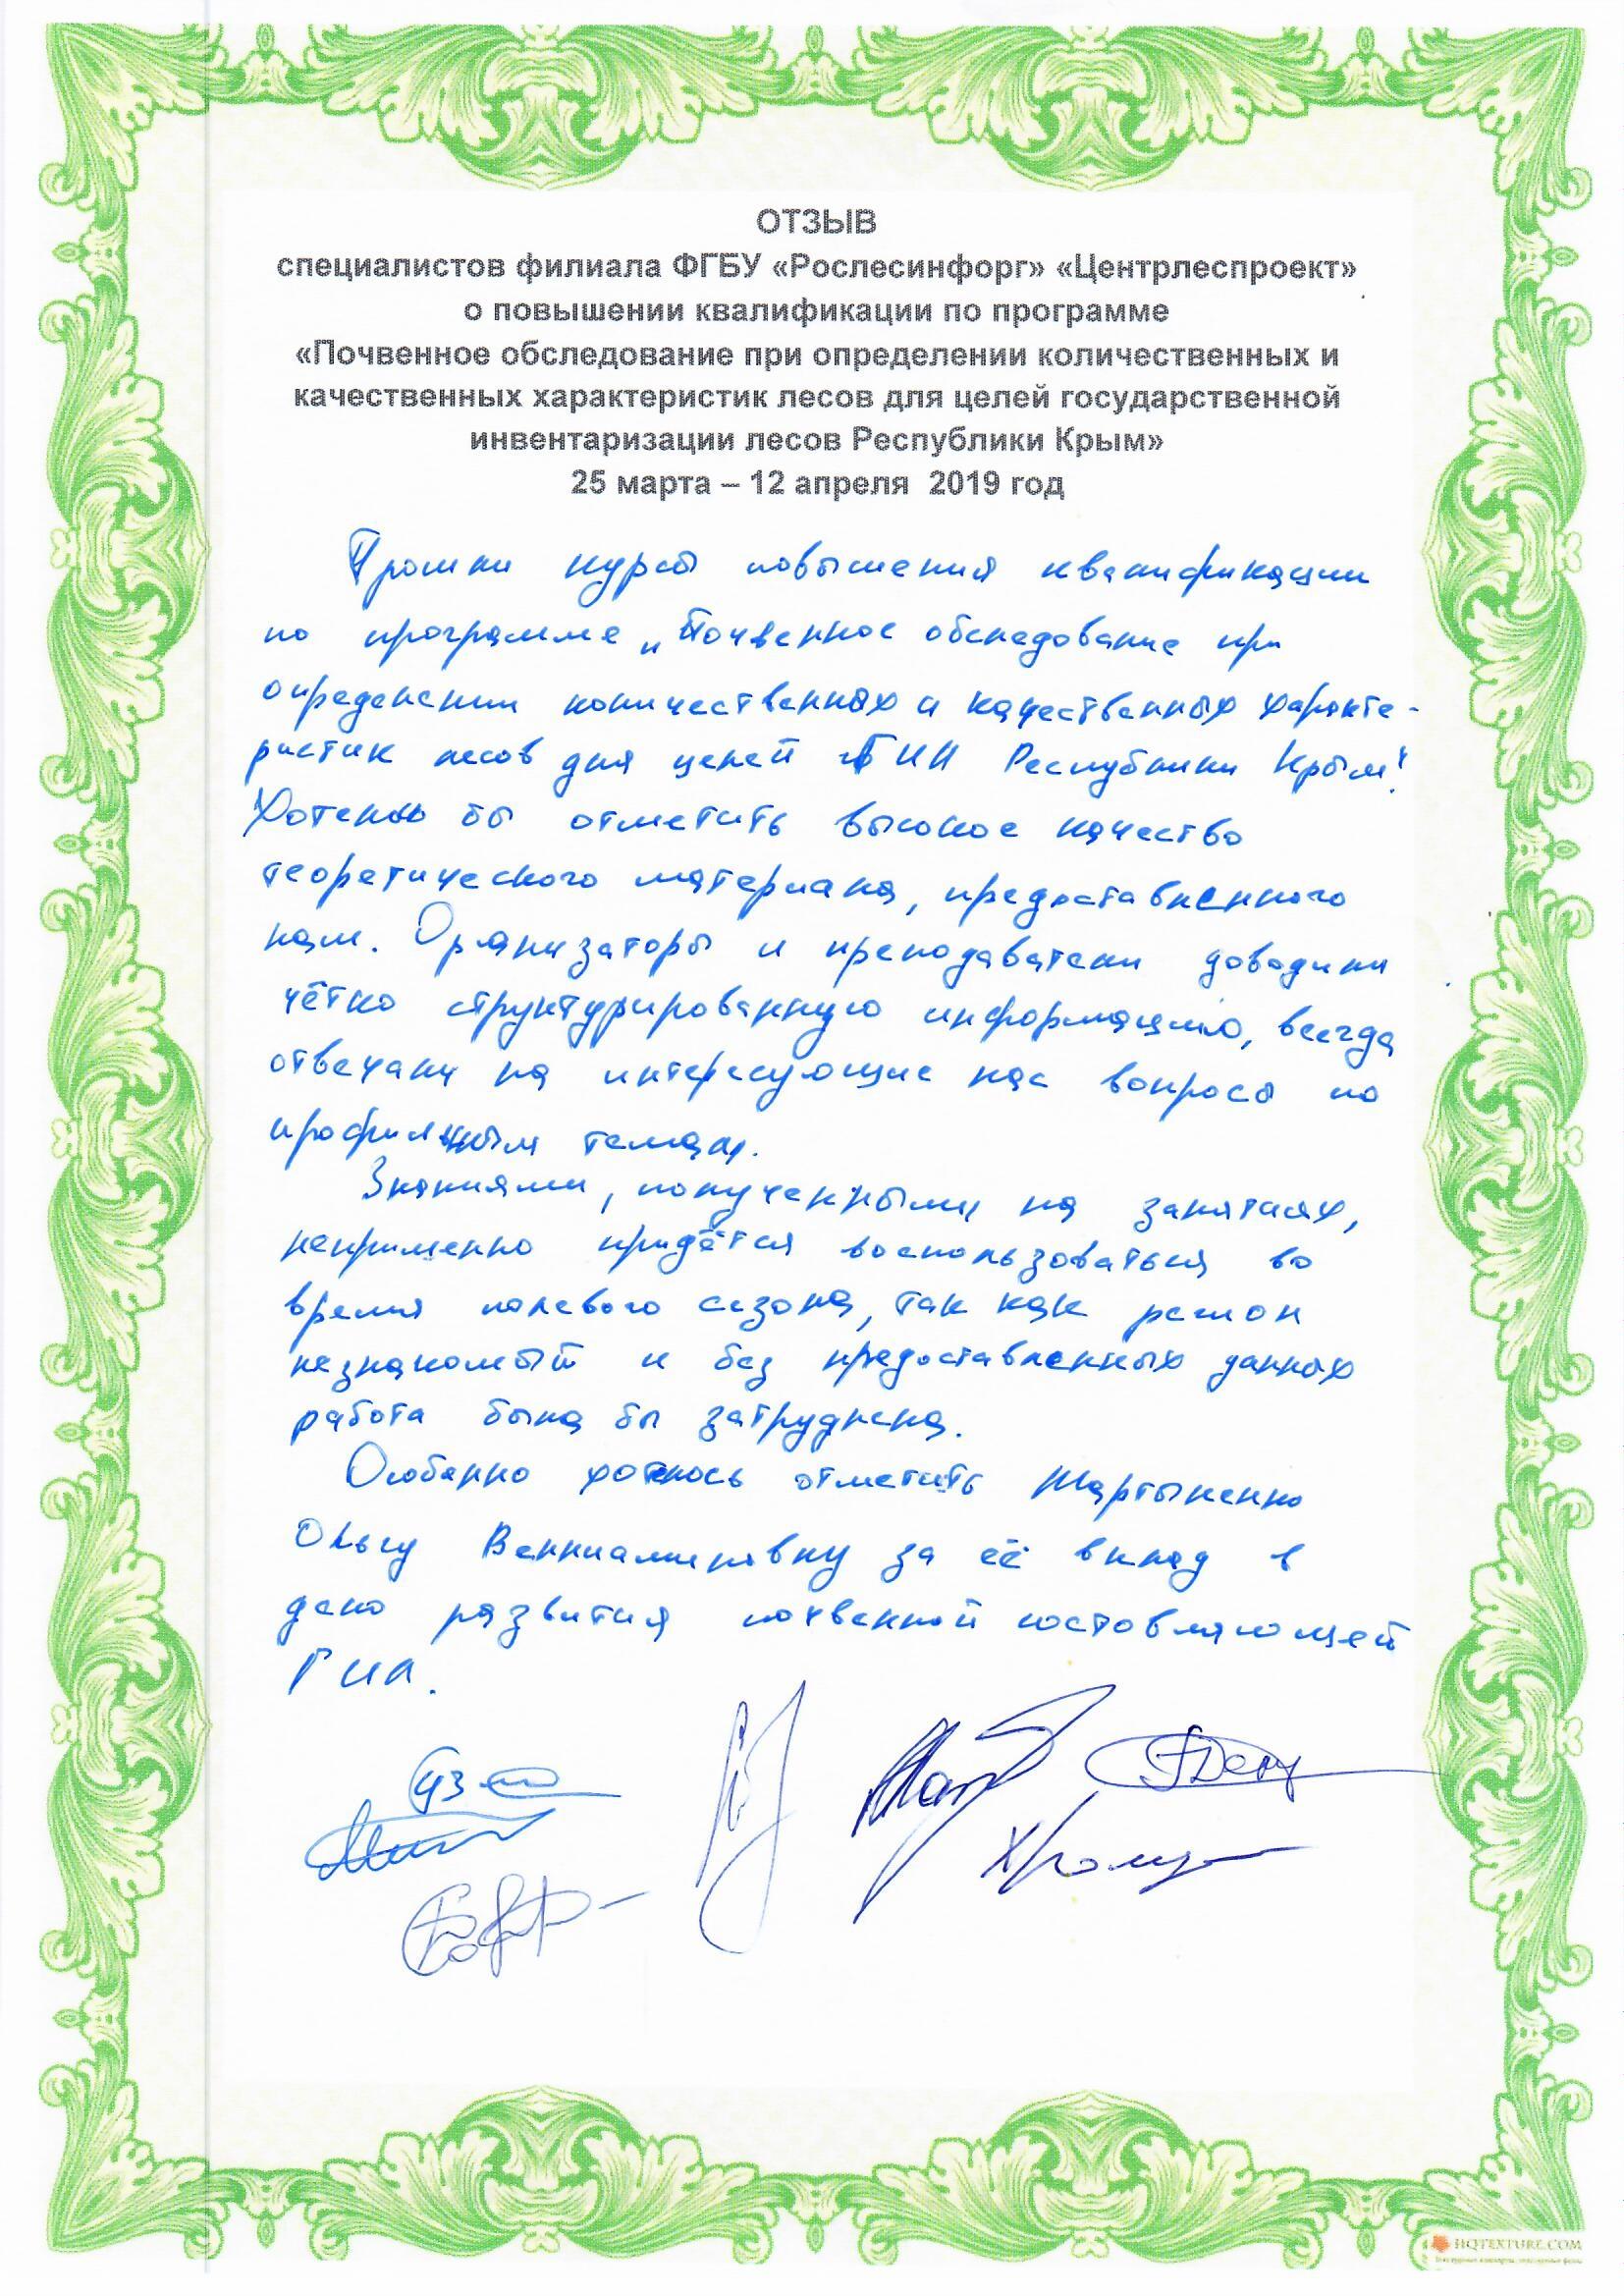 ОТЗЫВ
специалистов филиала ФГБУ «Рослесинфорг» «Центрлеспроект»
о повышении квалификации по программе
«Почвенное обследование при определении количественных и
качественных характеристик лесов для целей государственной
инвентаризации лесов Республики Крым»
25 марта – 12 апреля 2019 год
Прошли курсы повышения квалификации
по программе „Почвенное обследование при
определении количественных и качественных характе-
ристик лесов для целей ГИЛ Республики Крым".
Хотелось бы отметить высокое качество
теоретического материала, предоставленного
нам. Организаторы и преподаватели доводили
чётко структурированную информацию, всегда
отвечали на интересующие нас вопросы по
профильным темам.
Знаниями, полученными на занятиях,
непременно придётся воспользоваться во
время полевого сезона, так как регион
незнакомый и без предоставленных данных
работа была бы затруднена.
Особенно хотелось отметить Мартыненко
Ольгу Вениаминовну за её вклад в
дело развития почвенной составляющей
ГИЛ.
HQTEXTURE.COM